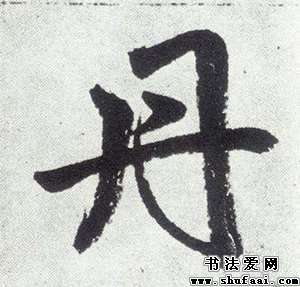 丹
书法爱网
www.shufaai.com